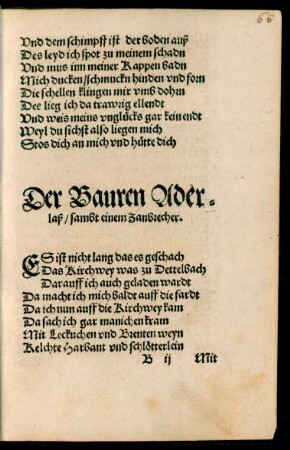 66
Vnd dem schimpff ist der boden auß
Des leyd ich spot zu meinem schadn
Vnd mus inn meiner Kappen badn
Mich ducken / schmuckn hinden vnd forn
Die schellen klingen mir vmb dohrn
Des lieg ich da trawrig ellendt
Vnd weis meins vnglücks gar kein endt
Weyl du sichst also liegen mich
Stos dich an mich vnd hütte dich
Der Bauren Ader-
laß / sambt einem Zanbrecher.
ES ist nicht lang das es geschach
Das Kirchwey was zu Dettelbach
Darauff ich auch geladen wardt
Da macht ich mich baldt auff die fardt
Da ich nun auff die Kirchwey kam
Da sach ich gar manichen kram
Mit Leckuchen vnd Brenten weyn
Kelchte Harbant vnd schlötterlein
B ij Mit